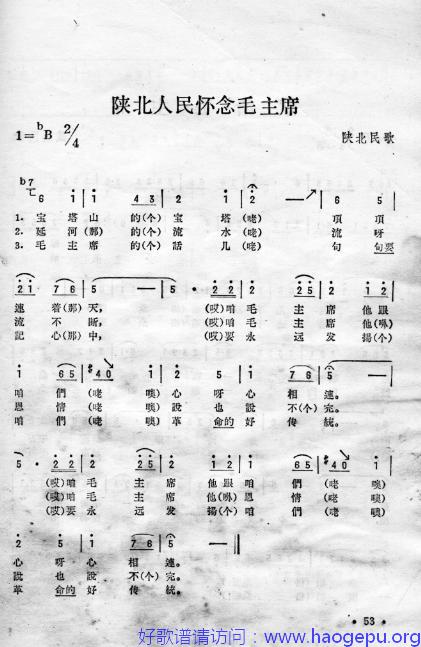 陕北人民怀念毛主席
1=ᵇB 2/4
陕北民歌
1. 宝塔山的(个)宝塔(咾)項項
2. 延河(那)的(个)流水(咾)流呀
3. 毛主席的(个)話儿(咾)句句要
連着(那)天, (哎)咱毛主席他跟
流不断, (哎)咱毛主席他(咻)
記心(那)中, (哎)要永远发揚(个)
咱們(咾噢)心呀心相連。
恩情(咾噢)說也說不(个)完。
咱們(咾噢)革命的好传統。
(哎)咱毛主席他跟咱們(咾噢)
(哎)咱毛主席他(咻)恩情(咾噢)
(哎)要永远发揚(个)咱們(咾噢)
心呀心相連。
說也說不(个)完。
革命的好传統。
• 53 •
好歌谱请访问：www.haogepu.org